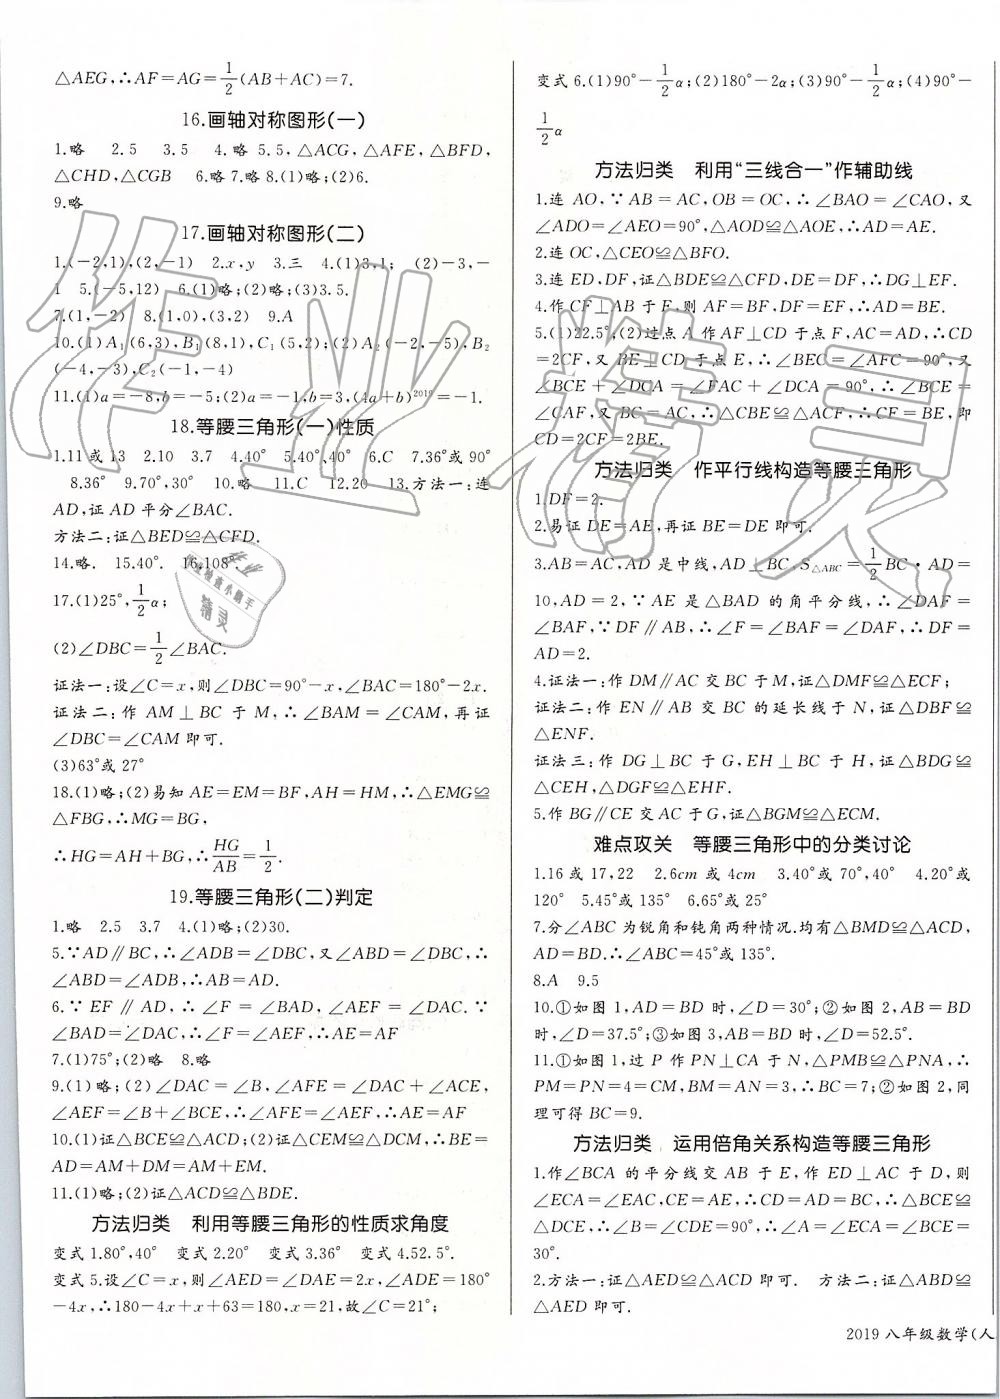 △AEG,∴AF=AG=1/2(AB+AC)=7.
16.画轴对称图形(一)
1.略 2.5 3.5 4.略 5.5,△ACG,△AFE,△BFD,
△CHD,△CGB 6.略 7.略 8.(1)略;(2)6.
9.略
17.画轴对称图形(二)
1.(-2,1),(2,-1) 2.x,y 3.三 4.(1)3,1; (2)-3,-
1 5.(-5,12) 6.(1)略;(2)略;(3)3.5.
7.(1,-2) 8.(1,0),(3,2) 9.A
10.(1)A₁(6,3),B₁(8,1),C₁(5,2);(2)A₂(-2,-5),B₂
(-4,-3),C₂(-1,-4)
11.(1)a=-8,b=-5;(2)a=-1,b=3,(4a+b)²⁰¹⁹=-1.
18.等腰三角形(一)性质
1.11或13 2.10 3.7 4.40° 5.40°,40° 6.C 7.36°或90°
8.36° 9.70°,30° 10.略 11.C 12.20 13.方法一:连
AD,证AD平分∠BAC.
方法二:证△BED≌△CFD.
14.略. 15.40°. 16.108°.
17.(1)25°,1/2α;
(2)∠DBC=1/2∠BAC.
证法一:设∠C=x,则∠DBC=90°-x,∠BAC=180°-2x.
证法二:作AM⊥BC于M,∴∠BAM=∠CAM,再证
∠DBC=∠CAM即可.
(3)63°或27°
18.(1)略;(2)易知AE=EM=BF,AH=HM,∴△EMG≌
△FBG,∴MG=BG,
∴HG=AH+BG,∴HG/AB=1/2.
19.等腰三角形(二)判定
1.略 2.5 3.7 4.(1)略;(2)30.
5.∵AD∥BC,∴∠ADB=∠DBC,又∠ABD=∠DBC,∴
∠ABD=∠ADB,∴AB=AD.
6.∵EF∥AD,∴∠F=∠BAD,∠AEF=∠DAC.∵
∠BAD=∠DAC,∴∠F=∠AEF,∴AE=AF
7.(1)75°;(2)略 8.略
9.(1)略;(2)∠DAC=∠B,∠AFE=∠DAC+∠ACE,
∠AEF=∠B+∠BCE,∴∠AFE=∠AEF,∴AE=AF
10.(1)证△BCE≌△DCA;(2)证△CEM≌△DCM,∴BE=
AD=AM+DM=AM+EM.
11.(1)略;(2)证△ACD≌△BDE.
方法归类 利用等腰三角形的性质求角度
变式1.80°,40° 变式2.20° 变式3.36° 变式4.52.5°.
变式5.设∠C=x,则∠AED=∠DAE=2x,∠ADE=180°
-4x,∴180-4x+x+63=180,x=21,故∠C=21°;
变式6.(1)90°-1/2α;(2)180°-2α;(3)90°-1/2α;(4)90°-
1/2α
方法归类 利用“三线合一”作辅助线
1.连AO,∵AB=AC,OB=OC,∴∠BAO=∠CAO,又
∠ADO=∠AEO=90°,△AOD≌△AOE,∴AD=AE.
2.连OC,△CEO≌△BFO.
3.连ED,DF,证△BDE≌△CFD,DE=DF,∴DG⊥EF.
4.作CF⊥AB于F,则AF=BF,DF=EF,∴AD=BE.
5.(1)22.5°,(2)过点A作AF⊥CD于点F,AC=AD,∴CD
=2CF,又BE⊥CD于点E,∴∠BEC=∠AFC=90°,又
∠BCE+∠DCA=∠FAC+∠DCA=90°,∴∠BCE=
∠CAF,又BC=AC,∴△CBE≌△ACF,∴CF=BE,即
CD=2CF=2BE.
方法归类 作平行线构造等腰三角形
1.DF=2.
2.易证DE=AE,再证BE=DE即可.
3.AB=AC,AD是中线,AD⊥BC,S△ABC=1/2BC·AD=
10,AD=2,∵AE是△BAD的角平分线,∴∠DAF=
∠BAF,∵DF∥AB,∴∠F=∠BAF=∠DAF,∴DF=
AD=2.
4.证法一:作DM∥AC交BC于M,证△DMF≌△ECF;
证法二:作EN∥AB交BC的延长线于N,证△DBF≌
△ENF.
证法三:作DG⊥BC于G,EH⊥BC于H,证△DBG≌
△CEH,△DGF≌△EHF.
5.作BG∥CE交AC于G,证△BGM≌△ECM.
难点攻关 等腰三角形中的分类讨论
1.16或17,22 2.6cm或4cm 3.40°或70°,40° 4.20°或
120° 5.45°或135° 6.65°或25°
7.分∠ABC为锐角和钝角两种情况.均有△BMD≌△AND,
AD=BD.∴∠ABC=45°或135°.
8.A 9.5
10.①如图1,AD=BD时,∠D=30°;②如图2,AB=BD
时,∠D=37.5°;③如图3,AB=AD时,∠D=52.5°.
11.①如图1,过P作PN⊥CA于N,△PMB≌△PNA,∴
PM=PN=4=CM,BM=AN=3,∴BC=7;②如图2,同
理可得BC=9.
方法归类 运用倍角关系构造等腰三角形
1.作∠BCA的平分线交AB于E,作ED⊥AC于D,则
∠ECA=∠ECA,CE=AE,∴CD=AD=BC,∴△BCE≌
△DCE,∴∠B=∠CDE=90°,∴∠A=∠ECA=∠BCE=
30°.
2.方法一:证△AED≌△ACD即可. 方法二:证△ABD≌
△AED即可.
2019八年级数学(人
作业精灵